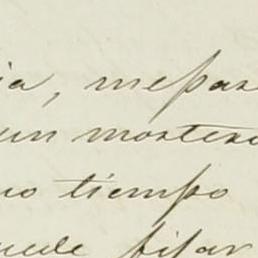 ia, mepar
un mortero
no tiempo
uede fijar